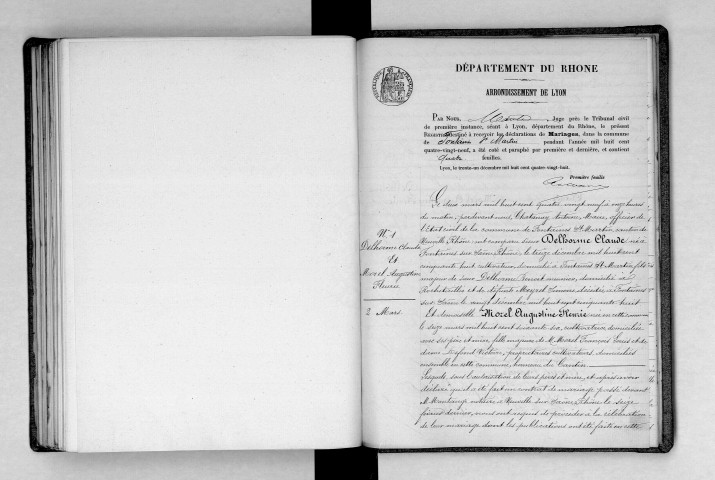 DÉPARTEMENT DU RHONE
ARRONDISSEMENT DE LYON
PAR NOUS, Juge près le Tribunal civil
de première instance, séant à Lyon, département du Rhône, le présent
REGISTRE destiné à recevoir les déclarations de Mariages, dans la commune
de Fontaines St Martin pendant l'année mil huit cent
quatre-vingt-neuf, a été coté et paraphé par première et dernière, et contient
Quatre feuilles.
Lyon, le trente-un décembre mil huit cent quatre-vingt-huit.
Première feuille
N° 1
Delhorme Claude
Et
Morel Augustine
Fleurie
2 Mars
Le deux mars mil huit cent quatre vingt neuf à onze heures
du matin, pardevant nous, Chatanay Antoine, Maire, officier de
l'Etat civil de la commune de Fontaines St Martin, canton de
Neuville Rhône, ont comparu sieur Delhorme Claude, né à
Fontaines sur Saône, Rhône, le treize décembre mil huit cent
cinquante huit, cultivateur, domicilié à Fontaines St Martin, fils
majeur de sieur Delhorme Benoit, domicilié à
Rochetaillée et de défunte décédée à Fontaines
sur Saône le vingt décembre mil huit cent cinquante huit
Et demoiselle Morel Augustine Fleurie née en cette commune
le seize mars mil huit cent soixante six, cultivatrice, domiciliée
avec ses père et mère, fille majeure de M. Morel François Louis et de
dame Victoire, propriétaires cultivateurs, domiciliés
ensemble en cette commune, hameau du
Lesquels sous l'autorisation de leurs pères et mère, et après avoir
déclaré qu'il a été fait un contrat de mariage passé devant
M. notaire à Neuville sur Saône, Rhône, le seize
février dernier, nous ont requis de procéder à la célébration
de leur mariage dont les publications ont été faites en cette